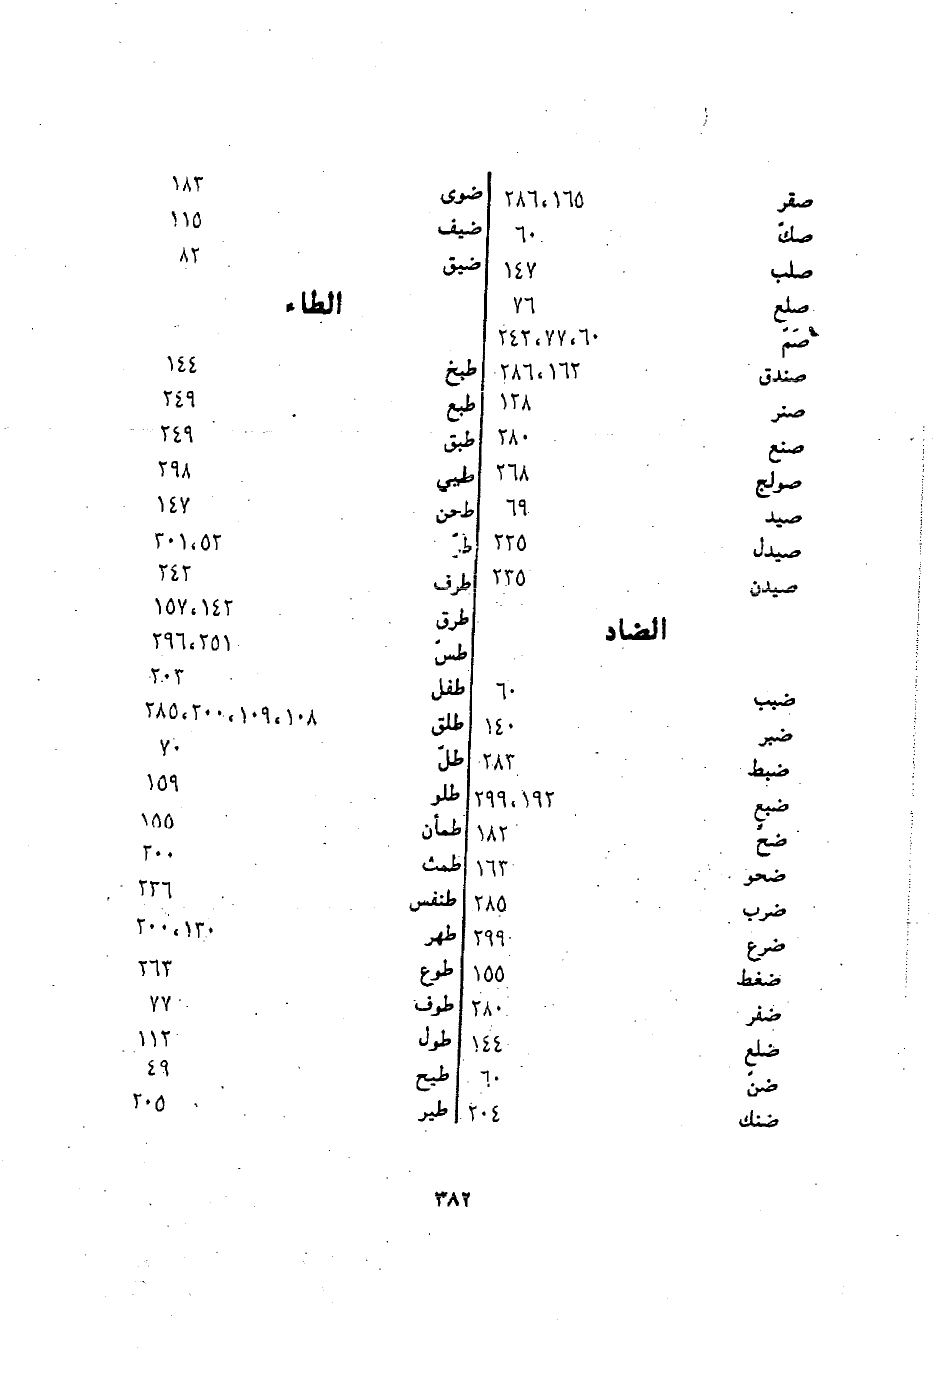 صقر ١٦٥، ٢٨٦
صكّ ٦٠
صلب ١٤٧
صلع ٧٦
صَمّ ٦٠، ٧٧، ٢٤٢
صندق ١٦٢، ٢٨٦
صنر ١٢٨
صنع ٢٨٠
صولج ٢٦٨
صيد ٦٩
صيدل ٢٢٥
صيدن ٢٣٥
الضاد
ضبب ٦٠
ضبر ١٤٠
ضبط ٢٨٣
ضبع ١٩٢، ٢٩٩
ضحّ ١٨٢
ضحو ١٦٣
ضرب ٢٨٥
ضرع ٢٩٩
ضغط ١٥٥
ضفر ٢٨٠
ضلع ١٤٤
ضنّ ٦٠
ضنك ٢٠٤
ضوى ١٨٣
ضيف ١١٥
ضيق ٨٢
الطاء
طبخ ١٤٤
طبع ٢٤٩
طبق ٢٤٩
طبي ٢٩٨
طحن ١٤٧
٥٢، ٢٠١
طرف ٢٤٢
طرق ١٤٢، ١٥٧
طسّ ٢٥١، ٢٩٦
طفل ٢٠٣
طلق ١٠٨، ١٠٩، ٢٠٠، ٢٨٥
طلّ ٧٠
طلو ١٥٩
طمأن ١٥٥
طمث ٢٠٠
طنفس ٢٢٦
طهر ١٣٠، ٢٠٠
طوع ٢٦٣
طوف ٧٧
طول ١١٢
طيح ٤٩
طير ٢٠٥
٣٨٢